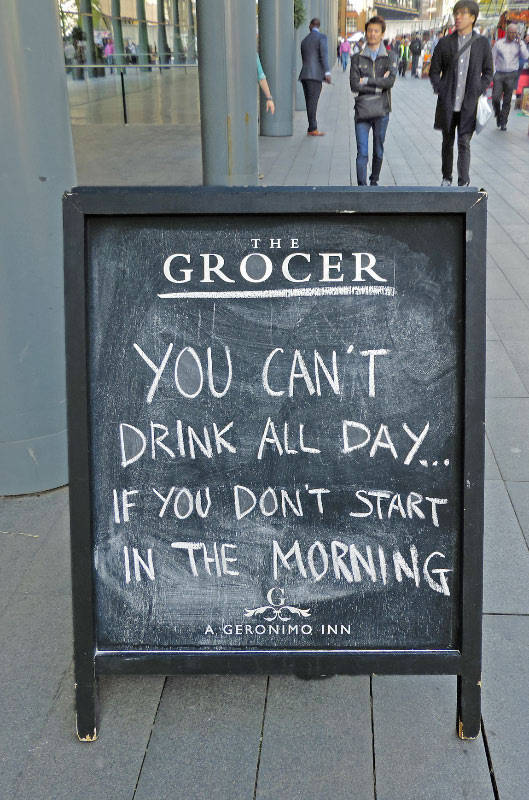 THE
GROCER
YOU CAN'T
DRINK ALL DAY...
IF YOU DON'T START
IN THE MORNING
G
A GERONIMO INN